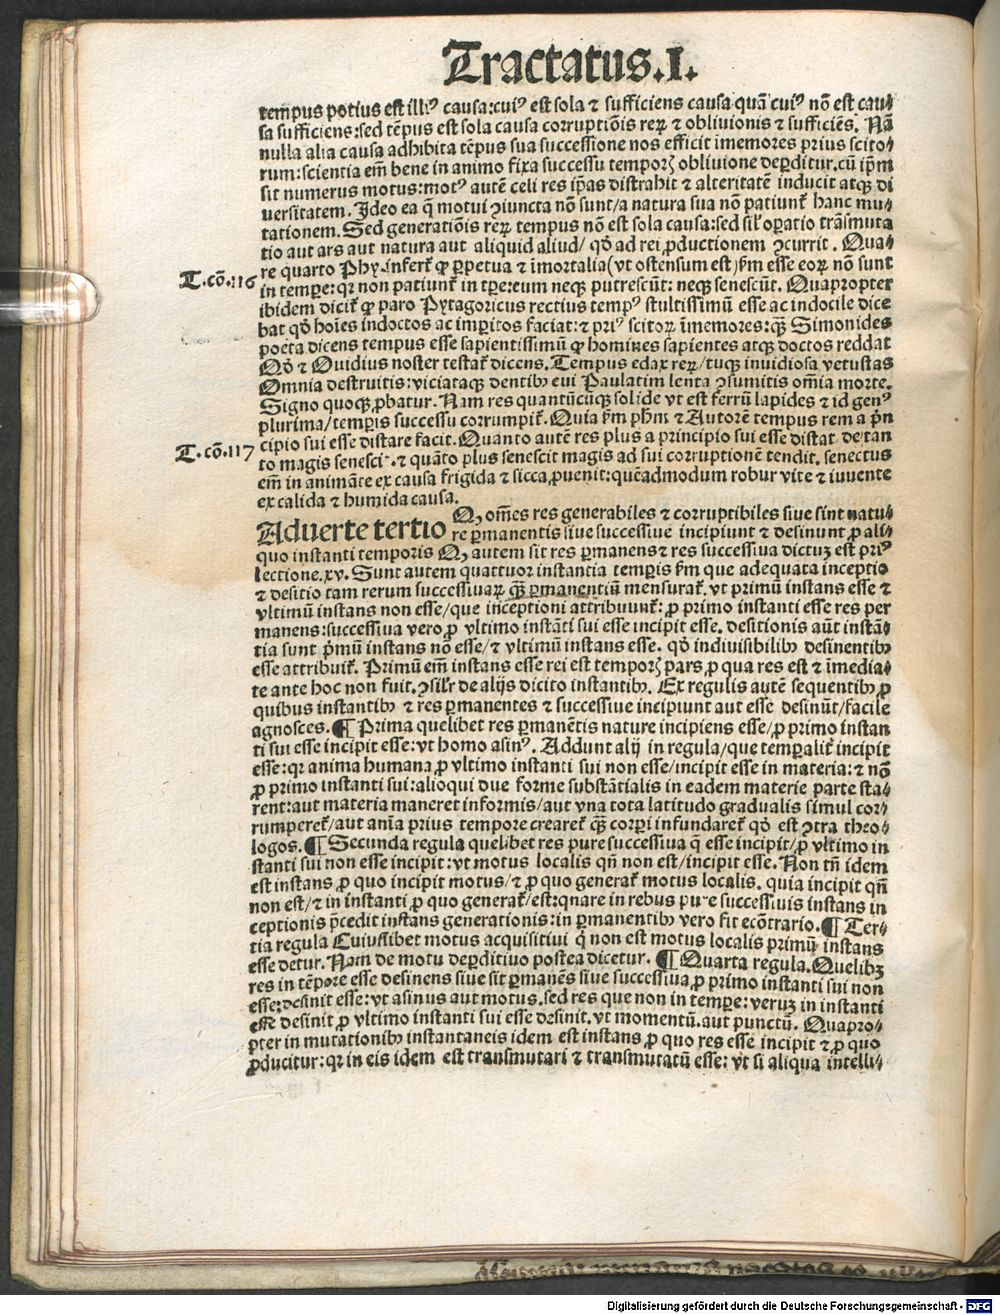 Tractatus.I.
tempus potius est illiꝰ causa:cuiꝰ est sola ⁊ sufficiens causa quā cuiꝰ nō est cau⸗
sa sufficiens:sed tēpus est sola causa corruptiōis reꝝ ⁊ obliuionis ⁊ sufficiēs. Nā
nulla alia causa adhibita tēpus sua successione nos efficit īmemores prius scito⸗
rum:scientia em̄ bene in animo fixa successu temporꝫ obliuione deꝑditur.cū ip̄m
sit numerus motus:motꝰ autē celi res ip̄as distrahit ⁊ alteritatē inducit atqꝫ di
uersitatem. Ideo ea q̄ motui ꝯiuncta nō sunt/a natura sua nō patiunt̉ hanc mu⸗
tationem. Sed generatiōis reꝝ tempus nō est sola causa:sed sil̉ oꝑatio trāsmuta
tio aut ars aut natura aut aliquid aliud/ qḋ ad rei ꝓductionem ꝯcurrit. Qua⸗
re quarto Phy.infert̉ ꝙ ꝑpetua ⁊ īmortalia(vt ostensum est)ẜm esse eoꝝ nō sunt
T.cō.116
in tempꝛe:qꝛ non patiunt̉ in tꝑe:eum neqꝫ putrescūt: neqꝫ senescūt. Quapropter
ibidem dicit̉ ꝙ paro Pytagoricus rectius tempꝰ stultissimū esse ac indocile dice
bat qḋ hoīes indoctos ac imꝑitos faciat:⁊ priꝰ scitoꝝ īmemores:qꝫ Simonides
poeta dicens tempus esse sapientissimū ꝙ homines sapientes atqꝫ doctos reddat
Qḋ ⁊ Ouidius noster testat̉ dicens. Tempus edax reꝝ/tuqꝫ inuidiosa vetustas
Omnia destruitis:viciataqꝫ dentibꝫ eui Paulatim lenta ꝯsumitis om̄ia morte.
Signo quoqꝫ ꝓbatur. Nam res quantūcūqꝫ solide vt est ferrū lapides ⁊ id genꝰ
plurima/temꝑis successu corrumpit̉. Quia ẜm ph̄m ⁊ Autorē tempus rem a pn̄
cipio sui esse distare facit. Quanto autē res plus a principio sui esse distat de tan
T.cō.117
to magis senescit.⁊ quāto plus senescit magis ad sui corruptionē tendit. senectus
em̄ in animāte ex causa frigida ⁊ sicca ꝓuenit:quēadmodum robur vite ⁊ iuuente
ex calida ⁊ humida causa.
Aduerte tertio Qꝫ om̄es res generabiles ⁊ corruptibiles siue sint natu⸗
re ꝑmanentis siue successiue incipiunt ⁊ desinunt ꝓ ali⸗
quo instanti temporis Qꝫ autem sit res ꝑmanens ⁊ res successiua dictuꝫ est priꝰ
lectione.xv. Sunt autem quattuor instantia temꝑis ẜm que adequata inceptio
⁊ desitio tam rerum successiuaꝝ qꝫ ꝑmanentiū mensurat̉. vt primū instans esse ⁊
vltimū instans non esse/que inceptioni attribuunt̉: ꝓ primo instanti esse res per
manens:successiua vero ꝓ vltimo instāti sui esse incipit esse. desitionis aūt instā⸗
tia sunt pͥmū instans nō esse/⁊ vltimū instans esse. qḋ indiuisibilibꝫ desinentibꝫ
esse attribuit̉. Primū em̄ instans esse rei est temporꝫ pars ꝓ qua res est ⁊ īmedia⸗
te ante hoc non fuit. ꝯsil̉r de alijs dicito instantibꝫ. Ex regulis autē sequentibꝫ ꝓ
quibus instantibꝫ ⁊ res ꝑmanentes ⁊ successiue incipiunt aut esse desinūt/facile
agnosces.¶ Prima quelibet res ꝑmanētis nature incipiens esse/ꝓ primo instan
ti sui esse incipit esse:vt homo asinꝰ. Addunt alij in regula/que temꝑalit̉ incipit
esse:qꝛ anima humana ꝓ vltimo instanti sui non esse/incipit esse in materia:⁊ nō
ꝓ primo instanti sui:alioqui due forme substātialis in eadem materie parte sta⸗
rent:aut materia maneret informis/aut vna tota latitudo gradualis simul cor⸗
rumperet̉/aut aīa prius tempore crearet̉ qꝫ corꝑi infundaret̉ qḋ est ꝯtra theo⸗
logos.¶ Secunda regula quelibet res pure successiua q̄ esse incipit/ꝓ vltimo in
stanti sui non esse incipit:vt motus localis qn̄ non est/incipit esse. Non tn̄ idem
est instans ꝓ quo incipit motus/⁊ ꝓ quo generat̉ motus localis. quia incipit qn̄
non est/⁊ in instanti ꝓ quo generat̉/est:qnare in rebus pure successiuis instans in
ceptionis pͣcedit instans generationis:in ꝑmanentibꝫ vero fit ecōtrario.¶ Ter⸗
tia regula Cuiuslibet motus acquisitiui q̄ non est motus localis primū instans
esse detur. Nam de motu deꝑditiuo postea dicetur. ¶ Quarta regula. Quelibꝫ
res in tēpore esse desinens siue sit ꝑmanēs siue successiua ꝓ primo instanti sui non
esse:desinit esse:vt asinus aut motus.sed res que non in tempꝛe:veruꝫ in instanti
esse desinit ꝓ vltimo instanti sui esse desinit.vt momentū.aut punctū. Quapro⸗
pter in mutationibꝫ instantaneis idem est instans ꝓ quo res esse incipit ⁊ ꝓ quo
ꝓducitur:qꝛ in eis idem est transmutari ⁊ transmutatū esse: vt si aliqua intelli⸗
Digitalisierung gefördert durch die Deutsche Forschungsgemeinschaft - DFG